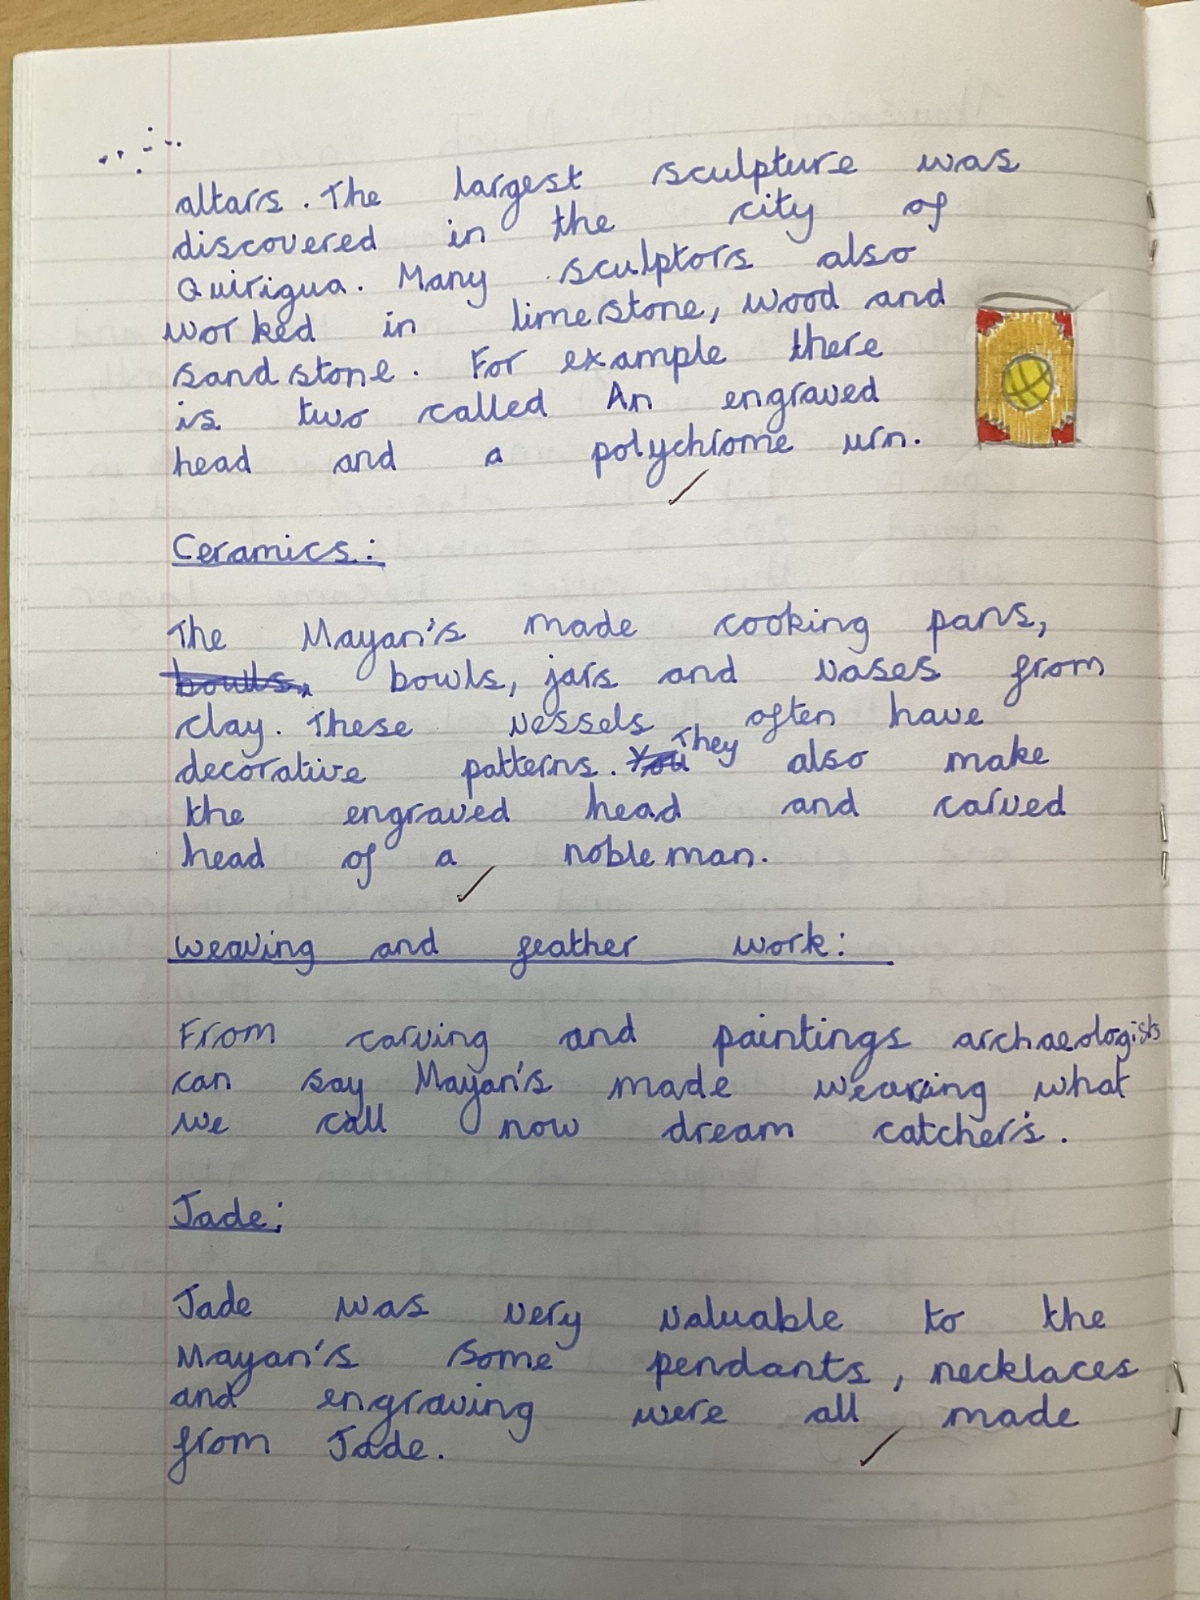 altars. The largest sculpture was
discovered in the city of
Quirigua. Many sculptors also
worked in limestone, wood and
sandstone. For example there
is two called An engraved
head and a polychrome urn.
Ceramics:
The Mayan's made cooking pans,
bowls, jars and vases from
clay. These vessels often have
decorative patterns. They also make
the engraved head and carved
head of a nobleman.
weaving and feather work:
From carving and paintings archaeologists
can say Mayan's made weaving what
we call now dream catcher's.
Jade:
Jade was very valuable to the
Mayan's some pendants, necklaces
and engraving were all made
from Jade.